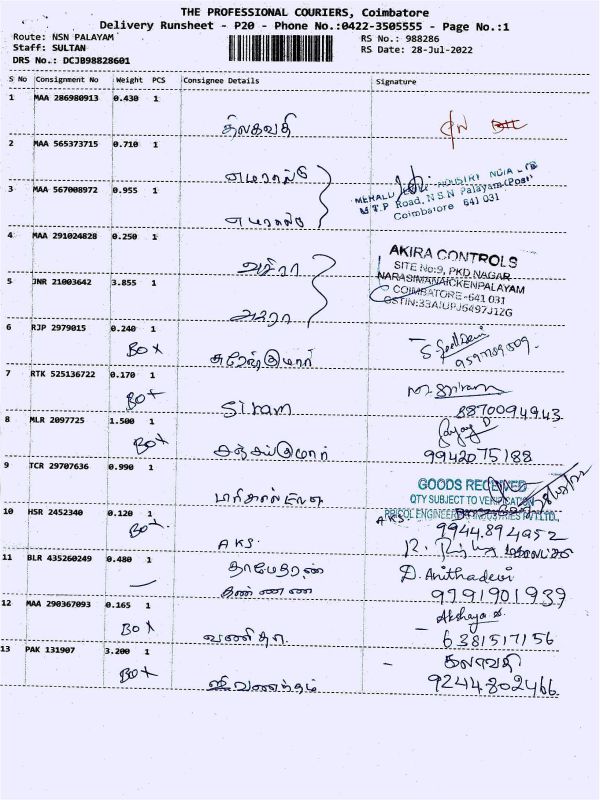 THE PROFESSIONAL COURIERS, Coimbatore
Delivery Runsheet - P20 - Phone No.:0422-3505555 - Page No.:1
Route: NSN PALAYAM
RS No.: 988286
Staff: SULTAN
RS Date: 28-Jul-2022
DRS No.: DCJB98828601
S No Consignment No Weight PCS Consignee Details Signature
1 MAA 286980913 0.430 1
திலகவதி
2 MAA 565373715 0.710 1
எமரால்டு
3 MAA 567008972 0.955 1
INDIA
M.T.P Road, N.S.N Palayam (Post)
Coimbatore 641 031
எமரால்டு
4 MAA 291024828 0.250 1
AKIRA CONTROLS
SITE No:9, PKD NAGAR
NARASIMANAICKENPALAYAM
COIMBATORE-641 031
GSTIN:33AIUPJ6497J1ZG
அகிரா
5 JNR 21003642 3.855 1
அகிரா
6 RJP 2979015 0.240 1
BOX சுரேஷ்குமார்
7 RTK 525136722 0.170 1
BOX Siram
8870094943
8 MLR 2097725 1.500 1
BOX சஞ்சய்குமார் 9942075188
9 TCR 29707636 0.990 1
GOODS RECEIVED
QTY SUBJECT TO VERIFICATION
PRICOL ENGINEERING INDUSTRIES PVT LTD.,
10 HSR 2452340 0.120 1
BOX AKS. AKS. 9944894952
11 BLR 435260249 0.480 1
தாமோதரன் D. Anithadevi
கண்ணன் 9791901939
12 MAA 290367093 0.165 1
Akshaya S.
BOX வனிதா 6381517156
13 PAK 131907 3.200 1
கலாவதி
BOX சிவானந்தம் 9244802466